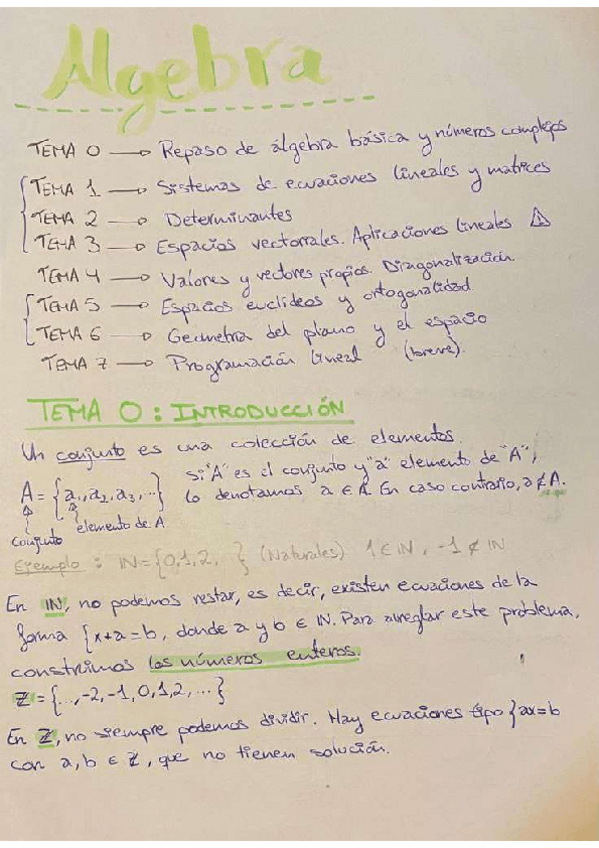 Algebra
TEMA 0 → Repaso de álgebra básica y números complejos
TEMA 1 → Sistemas de ecuaciones lineales y matrices
TEMA 2 → Determinantes
TEMA 3 → Espacios vectoriales. Aplicaciones lineales ⚠
TEMA 4 → Valores y vectores propios. Diagonalización
TEMA 5 → Espacios euclídeos y ortogonalidad
TEMA 6 → Geometría del plano y el espacio
TEMA 7 → Programación lineal (breve).
TEMA 0: INTRODUCCIÓN
Un conjunto es una colección de elementos.
A = {a₁, a₂, a₃, ..} si "A" es el conjunto y "a" elemento de "A",
lo denotamos a ∈ A. En caso contrario, a ∉ A.
conjunto elemento de A
Ejemplo: ℕ = {0,1,2, } (Naturales) 1 ∈ ℕ, -1 ∉ ℕ
En ℕ, no podemos restar, es decir, existen ecuaciones de la
forma {x+a=b, donde a y b ∈ ℕ. Para arreglar este problema,
construimos los números enteros.
ℤ = {..., -2, -1, 0, 1, 2, ...}
En ℤ, no siempre podemos dividir. Hay ecuaciones tipo {ax=b
con a, b ∈ ℤ, que no tienen solución.